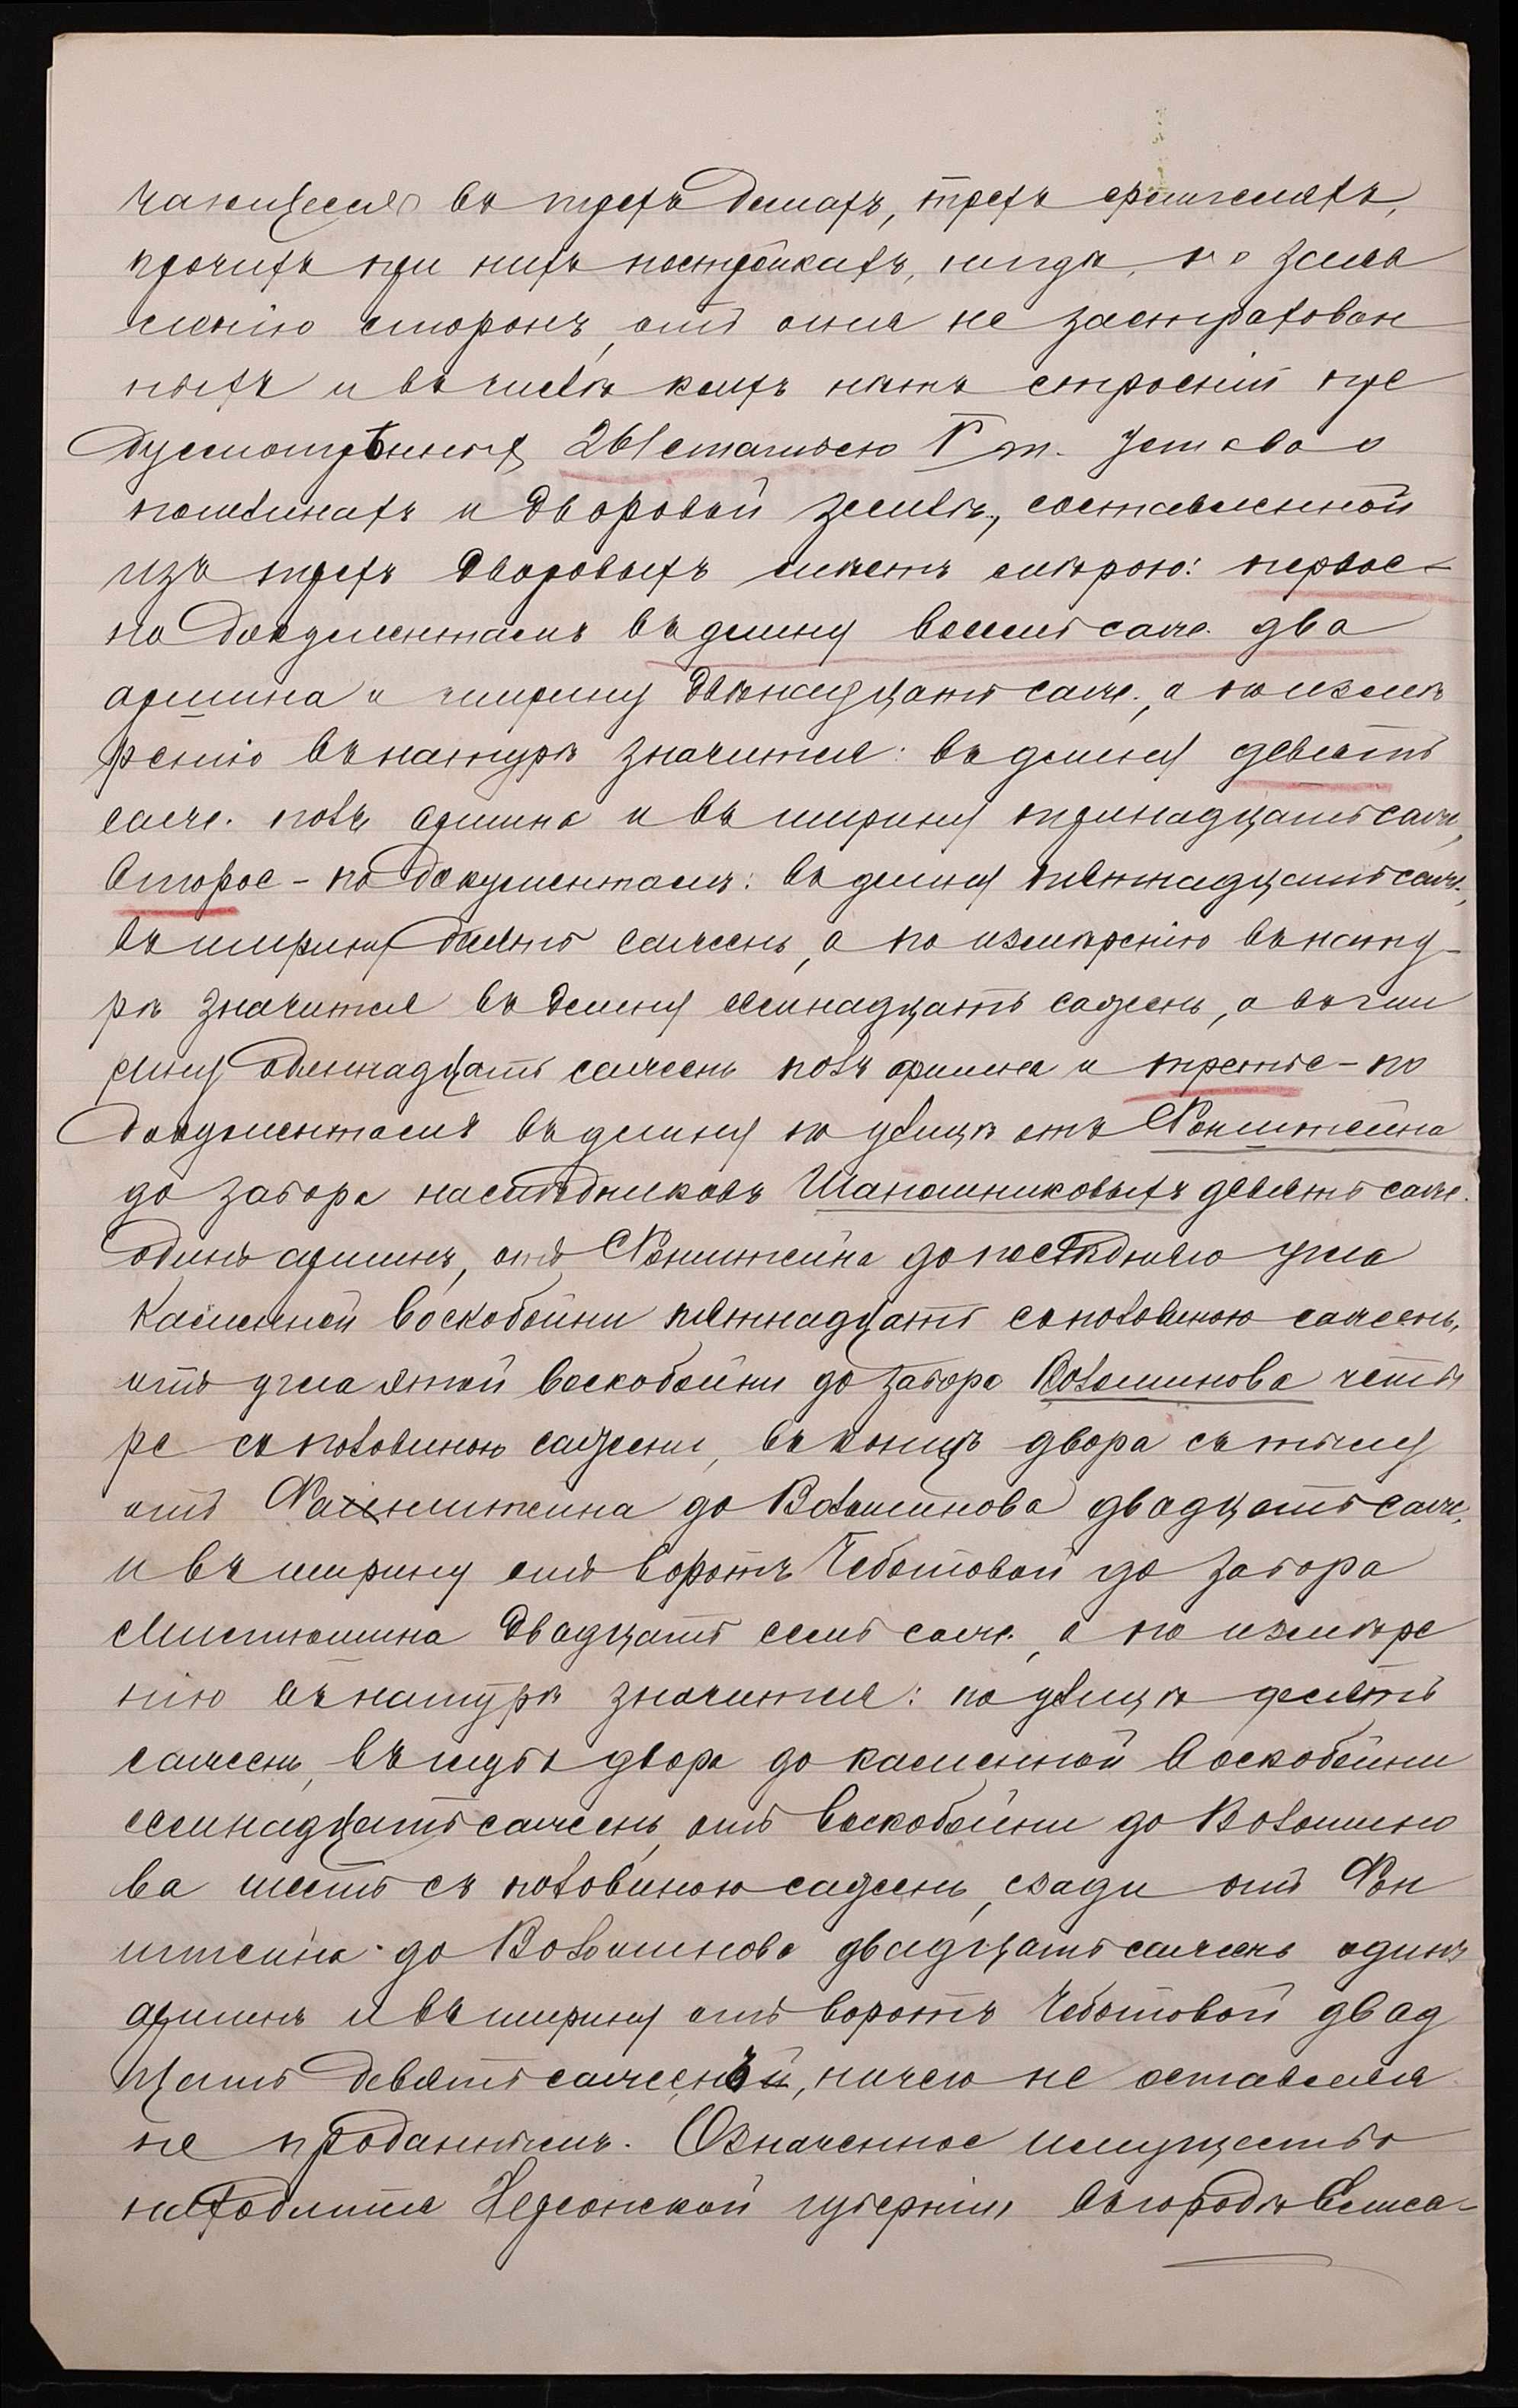 чающееся въ трехъ домахъ, трехъ флигеляхъ,
прочихъ при нихъ постройкахъ, нигдѣ, по заяв
ленію сторонъ, отъ огня не застрахован
ныхъ и въ числѣ коихъ нѣтъ строеній пре
дусмотрѣнныхъ 261 статьею V т. Устава о
пошлинахъ и дворовой землѣ, составленной
изъ трехъ дворовыхъ мѣстъ мѣрою: первое –
по документамъ въ длину восемь саж. два
аршина и ширину двѣнадцать саж., а по измѣ
ренію въ натурѣ значится: въ длину девять
саж. полъ аршина и въ ширину тринадцать саж.,
второе – по документамъ: въ длину пятнадцать саж.,
въ ширину девять сажень, а по измѣренію въ нату–
рѣ значится въ длину семнадцать сажень, а въ ши
рину одиннадцать сажень полъ аршина и третье – по
документамъ въ длину по улицѣ отъ Фанштейна
до забора наслѣдниковъ Шапошниковыхъ девять саж.
одинъ аршинъ, отъ Фанштейна до послѣдняго угла
каменной воскобойни пятнадцать съ половиною сажень,
отъ угла этой воскобойни до забора Волошинова четы
ре съ половиною сажени, въ концѣ двора съ тылу
отъ Фанштейна до Волошинова двадцать саж.
и въ ширину отъ воротъ Чеботовой до забора
двадцать семь саж., а по измѣре
нію въ натурѣ значится: по улицѣ десять
сажень, въ глубь двора до каменной воскобойни
семнадцать сажень, отъ воскобойни до Волошино
ва шесть съ половиною сажень, сзади отъ Фан
штейна до Волошинова двадцать сажень одинъ
аршинъ и въ ширину отъ воротъ Чеботовой двад
цать девять сажень, ничего не оставляя
не проданнымъ. Означенное имущество
находится Херсонской губерніи въ городѣ Елиса–